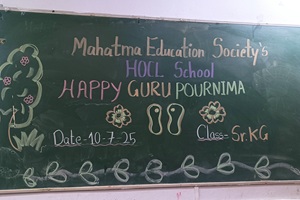 Mahatma Education Society's
HOCL School
HAPPY GURU POURNIMA
Date-10-7-25 Class- Sr.KG